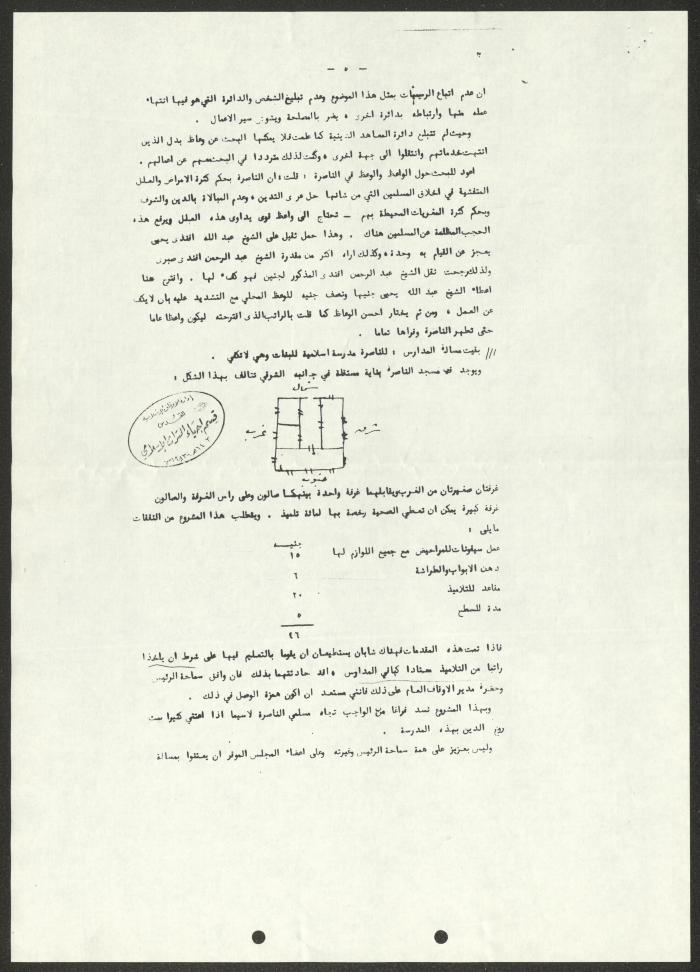 - ٥ -
ان عدم اتباع الرسميات بمثل هذا الموضوع وعدم تبليغ الشخص والدائرة التي هو فيها انتهاء
عمله منها وارتباطه بدائرة اخرى ، يضر بالمصلحة ويشوش سير الاعمال .
وحيث لم تتبلغ دائرة المعاهد الدينية كما علمت فلا يمكنها البحث عن وعاظ بدل الذين
انتهت خدماتهم وانتقلوا الى جهة اخرى ، وكنت لذلك مترددا في البحث معهم عن اعمالهم .
اعود للبحث حول الواعظ والوعظ في الناصرة : قلت ، ان الناصرة بحكم كثرة الامراض والعلل
المتفشية في اخلاق المسلمين التي من شانها حل عرى التدين ، وعدم المبالاة بالدين والشرف
وبحكم كثرة المغريات المحيطة بهم - تحتاج الى واعظ قوى يداوى هذه العلل ويرفع هذه
الحجب المظلمة عن المسلمين هناك . وهذا حمل ثقيل على الشيخ عبد الله افندى يحيى
يعجز عن القيام به وحدة ، وكذلك اراه اكثر من مقدرة الشيخ عبد الرحمن افندى صبرى
ولذلك رجحت نقل الشيخ عبد الرحمن افندى المذكور لجنين فهو كفء لها . واقترح هنا
اعطاء الشيخ عبد الله يحيى جنيها ونصف جنيه للوعظ المحلي مع التشديد عليه بان لا يكف
عن العمل ، ومن ثم يختار احسن الوعاظ كما قلت بالراتب الذى اقترحته ليكون واعظا عاما
حتى تطهر الناصرة وقراها تماما .
/// بقيت مسالة المدارس : للناصرة مدرسة اسلامية للبنات وهي لا تكفي .
ويوجد في مسجد الناصرة بناية مستقلة في جانبه الشرقي تتالف بهذا الشكل :
شمال
شرق
غرب
جنوب
قسم إحياء التراث الإسلامي
غرفتان صغيرتان من الغرب ويقابلهما غرفة واحدة بينهما صالون وعلى راس الغرفة والصالون
غرفة كبيرة يمكن ان تعطي الصحية رخصة بها لمائة تلميذ . ويتطلب هذا المشروع من النفقات
ما يلي :
جنيه
عمل سيفونات للمراحيض مع جميع اللوازم لها ١٥
دهن الابواب والطراشة ٦
مقاعد للتلاميذ ٢٠
مدة للسطح ٥
٤٦
فاذا تمت هذه المقدمات فهناك شابان يستطيعان ان يقوما بالتعليم فيها على شرط ان ياخذا
راتبا من التلاميذ معتادا كباقي المدارس ، وقد حادثتهما بذلك فان وافق سماحة الرئيس
وحضرة مدير الاوقاف العام على ذلك فانني مستعد ان اكون همزة الوصل في ذلك .
وبهذا المشروع نسد فراغا من الواجب تجاه مسلمي الناصرة لاسيما اذا اعتني كثيرا ببث
روح الدين بهذه المدرسة .
وليس بعزيز على همة سماحة الرئيس وغيرته وعلى اعضاء المجلس الموقر ان يعتنوا بمسالة